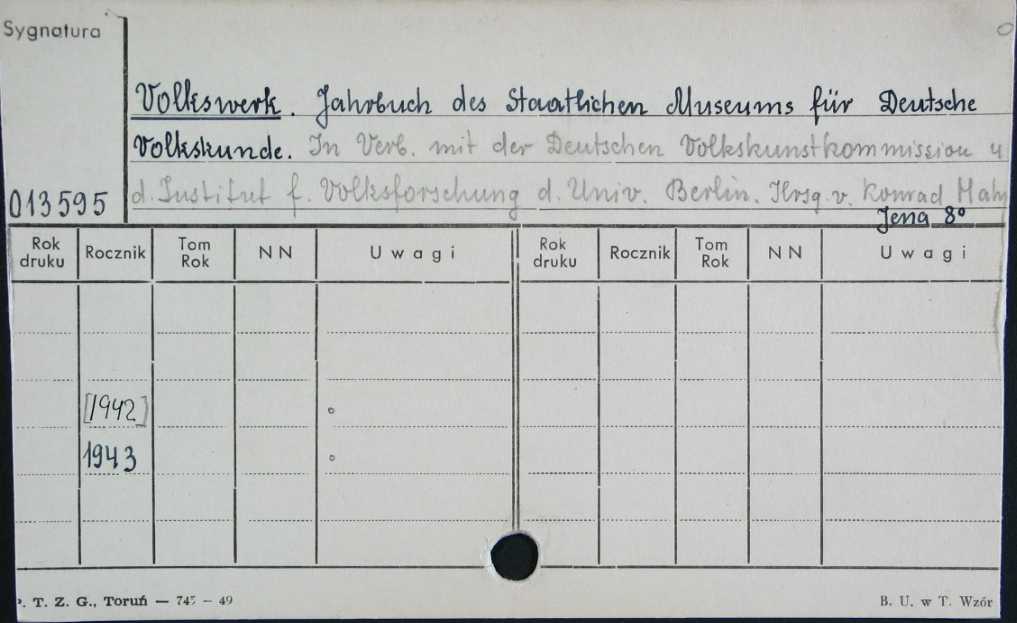 Sygnatura
Volkswerk. Jahrbuch des Staatlichen Museums für Deutsche
Volkskunde. In Verb. mit der Deutschen Volkskunstkommission u
d. Institut f. Volksforschung d. Univ. Berlin. Hrsg. v. Konrad Hahn
013595
Jena 8°
Rok druku Rocznik Tom Rok NN Uwagi Rok druku Rocznik Tom Rok NN Uwagi
[1942]
1943
P. T. Z. G., Toruń — 745 – 49 B. U. w T. Wzór